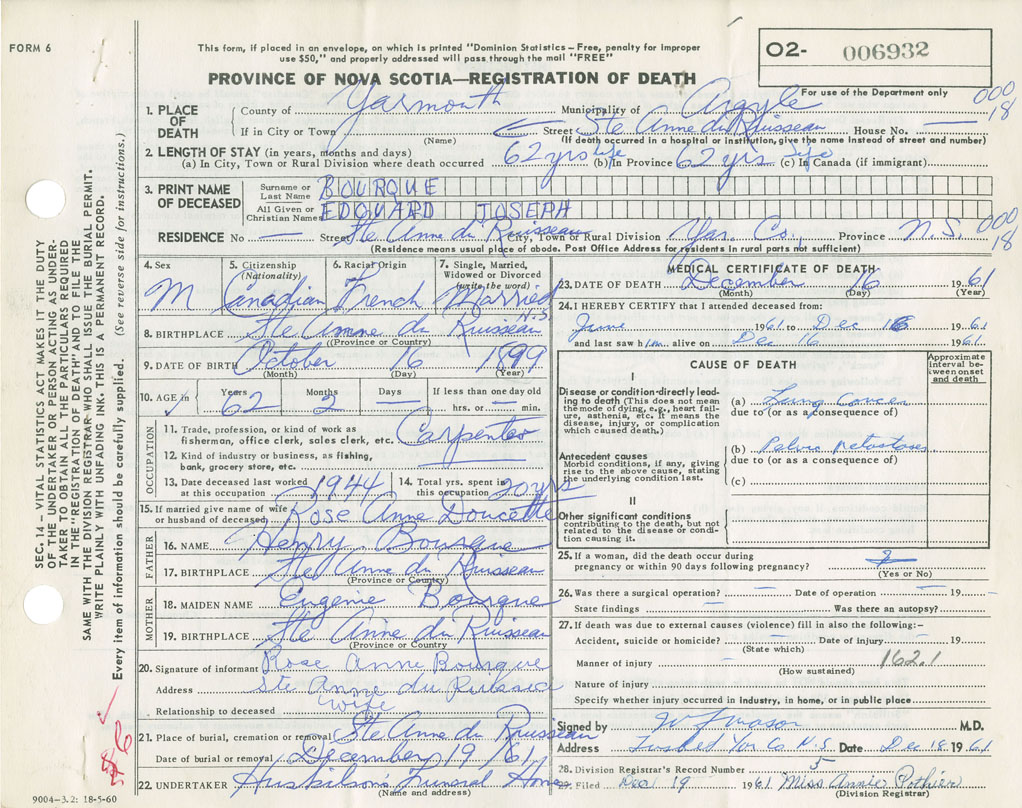 FORM 6
This form, if placed in an envelope, on which is printed "Dominion Statistics – Free, penalty for improper
use $50," and properly addressed will pass through the mail "FREE"
PROVINCE OF NOVA SCOTIA—REGISTRATION OF DEATH
O2- 006932
For use of the Department only
000
18
1. PLACE OF DEATH County of Yarmouth Municipality of Argyle
If in City or Town (Name) Street Ste Anne du Ruisseau House No. —
(If death occurred in a hospital or institution, give the name instead of street and number)
2. LENGTH OF STAY (in years, months and days)
(a) In City, Town or Rural Division where death occurred 62 yrs life (b) In Province 62 yrs life (c) In Canada (if immigrant)
3. PRINT NAME OF DECEASED Surname or Last Name BOURQUE
All Given or Christian Names EDOUARD JOSEPH
RESIDENCE No — Street Ste Anne du Ruisseau City, Town or Rural Division Yar. Co., Province N.S. 000
18
(Residence means usual place of abode. Post Office Address for residents in rural parts not sufficient)
4. Sex 5. Citizenship (Nationality) 6. Racial Origin 7. Single, Married, Widowed or Divorced (write the word)
M Canadian French Married
N.S.
8. BIRTHPLACE Ste Anne du Ruisseau
(Province or Country)
9. DATE OF BIRTH October 16 1899
(Month) (Day) (Year)
10. AGE in Years Months Days If less than one day old
62 2 — hrs. or — min.
OCCUPATION
11. Trade, profession, or kind of work as
fisherman, office clerk, sales clerk, etc. Carpenter
12. Kind of industry or business, as fishing,
bank, grocery store, etc. —
13. Date deceased last worked at this occupation 1944 14. Total yrs. spent in this occupation 20 yrs
15. If married give name of wife
or husband of deceased Rose Anne Doucette
FATHER
16. NAME Henry Bourque
17. BIRTHPLACE Ste Anne du Ruisseau
(Province or Country)
MOTHER
18. MAIDEN NAME Eugenie Bourque
19. BIRTHPLACE Ste Anne du Ruisseau
(Province or Country
20. Signature of informant Rose Anne Bourque
Address Ste Anne du
Relationship to deceased wife
21. Place of burial, cremation or removal Ste Anne du Ruisseau
Date of burial or removal December 19/61
22. UNDERTAKER Huskilson's Funeral Home
(Name and address)
9004–3.2: 18-5-60
MEDICAL CERTIFICATE OF DEATH
23. DATE OF DEATH December 16 1961
(Month) (Day) (Year)
24. I HEREBY CERTIFY that I attended deceased from:
June 1961 to Dec 16 1961
and last saw him alive on Dec 16 1961
CAUSE OF DEATH
Approximate interval between onset and death
I
Disease or condition directly leading to death (This does not mean
the mode of dying, e.g., heart failure, asthenia, etc. It means the
disease, injury, or complication
which caused death.)
(a) Lung Cancer
due to (or as a consequence of)
Antecedent causes
Morbid conditions, if any, giving
rise to the above cause, stating
the underlying condition last.
(b) Pelvic metastases
due to (or as a consequence of)
(c)
II
Other significant conditions
contributing to the death, but not
related to the disease or condition causing it.
25. If a woman, did the death occur during
pregnancy or within 90 days following pregnancy?
(Yes or No)
26. Was there a surgical operation? — Date of operation — 19 —
State findings — Was there an autopsy?
27. If death was due to external causes (violence) fill in also the following:–
Accident, suicide or homicide? — Date of injury 19
(State which)
Manner of injury — 162.1
(How sustained)
Nature of injury
Specify whether injury occurred in industry, in home, or in public place
Signed by M.D.
Address Tusket Yar Co N.S. Date Dec 18 1961
28. Division Registrar's Record Number 5
29. Filed Dec 19 1961 Miss Annie Pothier
(Division Registrar)
SEC. 14 – VITAL STATISTICS ACT MAKES IT THE DUTY
OF THE UNDERTAKER OR PERSON ACTING AS UNDERTAKER TO OBTAIN ALL THE PARTICULARS REQUIRED
IN THE "REGISTRATION OF DEATH" AND TO FILE THE
SAME WITH THE DIVISION REGISTRAR WHO SHALL ISSUE THE BURIAL PERMIT.
WRITE PLAINLY WITH UNFADING INK. THIS IS A PERMANENT RECORD.
Every item of information should be carefully supplied. (See reverse side for instructions.)